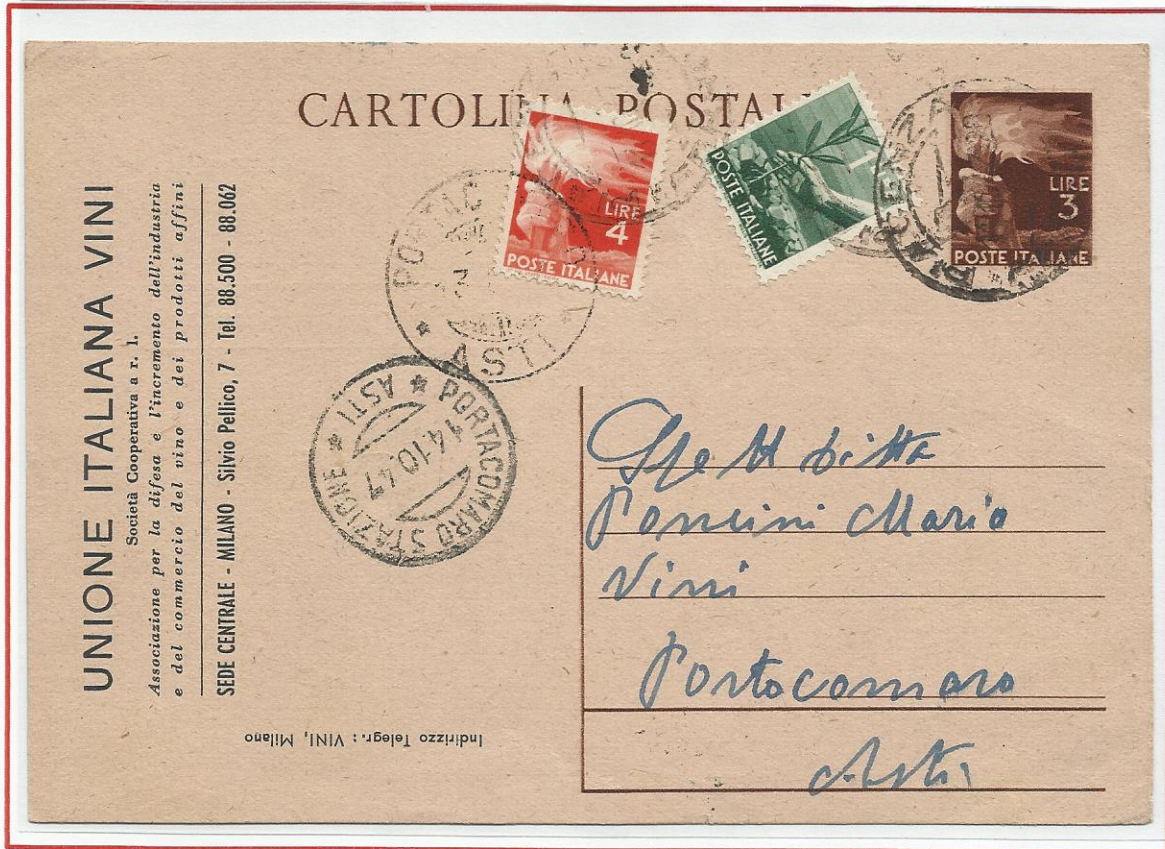 CARTOLINA POSTALE
LIRE
4
POSTE ITALIANE
1
POSTE ITALIANE
LIRE
3
POSTE ITALIANE
PIACENZA
ASTI
PORTACOMARO STAZIONE * ASTI *
14.10.47
UNIONE ITALIANA VINI
Società Cooperativa a r. l.
Associazione per la difesa e l'incremento dell'industria
e del commercio del vino e dei prodotti affini
SEDE CENTRALE - MILANO - Silvio Pellico, 7 - Tel. 88.500 - 88.062
Indirizzo Telegr.: VINI, Milano
Spett Ditta
Poncini Mario
Vini
Portacomaro
Asti